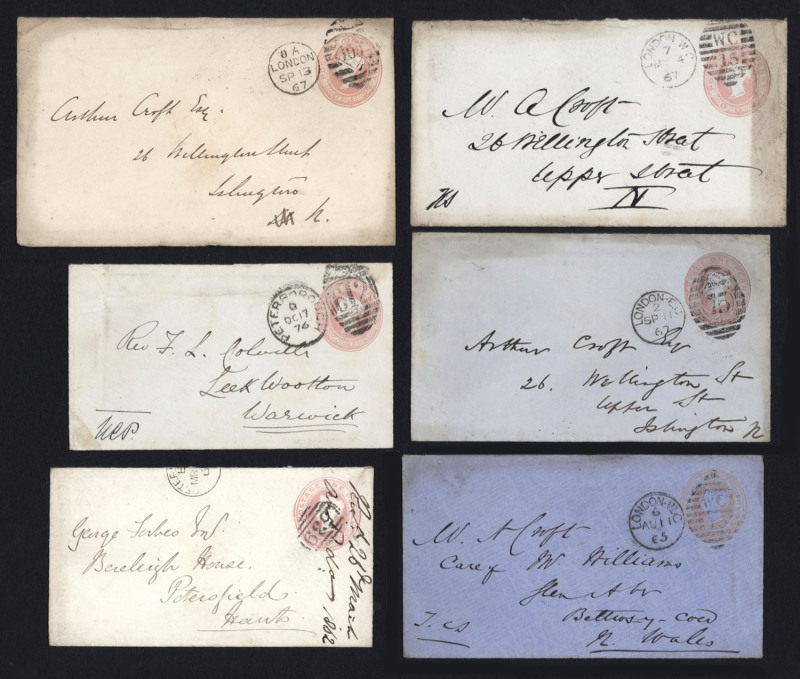 8 A
LONDON
SP 13
67
Arthur Croft Esq.
26 Wellington Street
Islington
N.
LONDON-W.C
7
4
67
WC
15
W. A Croft
26 Wellington Street
Upper Street
N
PETERBOROUGH
OC 17
76
Rev F. L. Colvile
Leek Wootton
Warwick
LONDON-E.C
Z
SP 11
67
Arthur Croft Esq
26. Wellington St
Upper St
Islington N
George Forbes Esq.
Bereleigh House.
Petersfield
Hants
26th March
1862
LONDON-W.C
6
AU 11
65
WC
W. A Croft
Care of Mr Williams
Bettws-y-coed
N. Wales